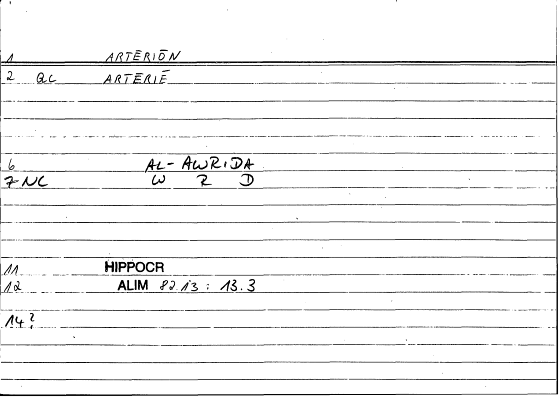 1 ARTERIŌN
2 QC ARTERIĒ
6 AL-AWRIDA
7 NC W R D
11 HIPPOCR
12 ALIM 82.13 : 13.3
14?